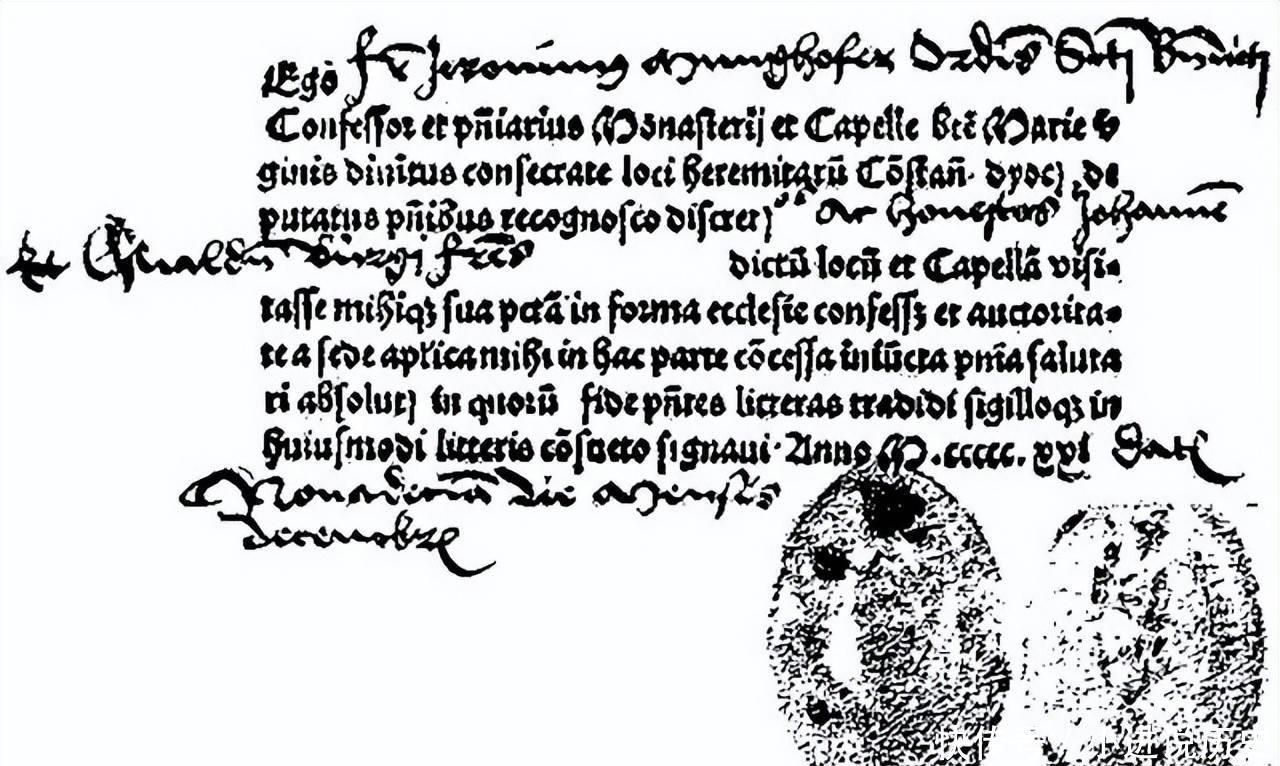 Ego fr̄ Jeronimus Munghofer Ordīs Sctī Bn̄dicti
Confessor et pn̄iarius Mōnasterij et Capelle btē Marie v
ginis diuinitus consecrate loci heremitarū Cōstan̄. dyocꝭ, de
putatus pn̄ibus recognosco discretꝭ os ac honestos Johannē
et Oswaldū Burgi fr̄es
dictū locū et Capellā visi-
tasse mihiqꝫ sua pctā in forma ecclesie confessꝫ et auctorita-
te a sede apl̄ica mihi in hac parte cōcessa iniūcta pn̄ia saluta
ri absolutꝭ in quorū fidē pn̄tes litteras tradidi sigilloqꝫ in
huiusmodi litteris cōsueto signaui. Anno M.ccccc.xxi Datꝭ
Nonadecia die Mensis
decembrꝭ